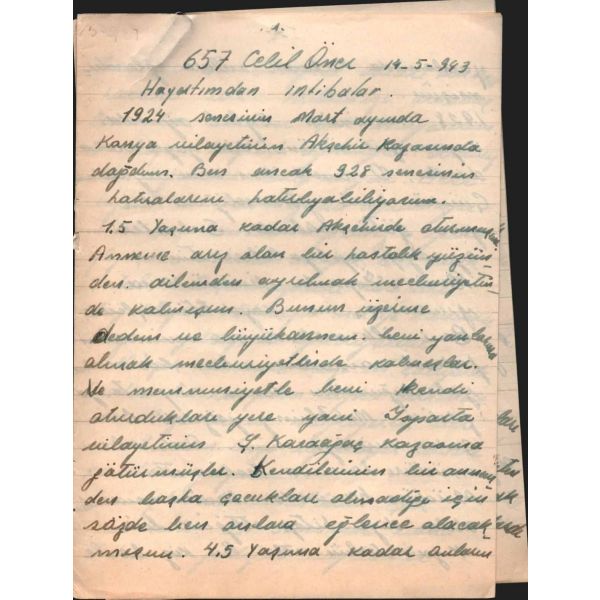 .1.
657 Celil Öner 14-5-943
Hayatımdan intibalar.
1924 senesinin Mart ayında
Konya vilayetinin Akşehir kazasında
doğdum. Ben ancak 928 senesinin
hatıralarını hatırlıyabiliyorum.
1.5 Yaşına kadar Akşehirde oturmuşum
Anneme arız olan bir hastalık yüzün-
den ailemden ayrılmak mecburiyetin-
de kalmışım. Bunun üzerine
dedem ve büyükannem beni yanlarına
almak mecburiyetinde kalmışlar.
Ve memnuniyetle beni kendi
oturdukları yere yani Isparta
vilayetinin Ş. Karaağaç kazasına
götürmüşler. Kendilerinin bir annem
den başka çocukları olmadığı için
sözde ben onlara eğlence olacak-
mışım. 4.5 Yaşına kadar onların